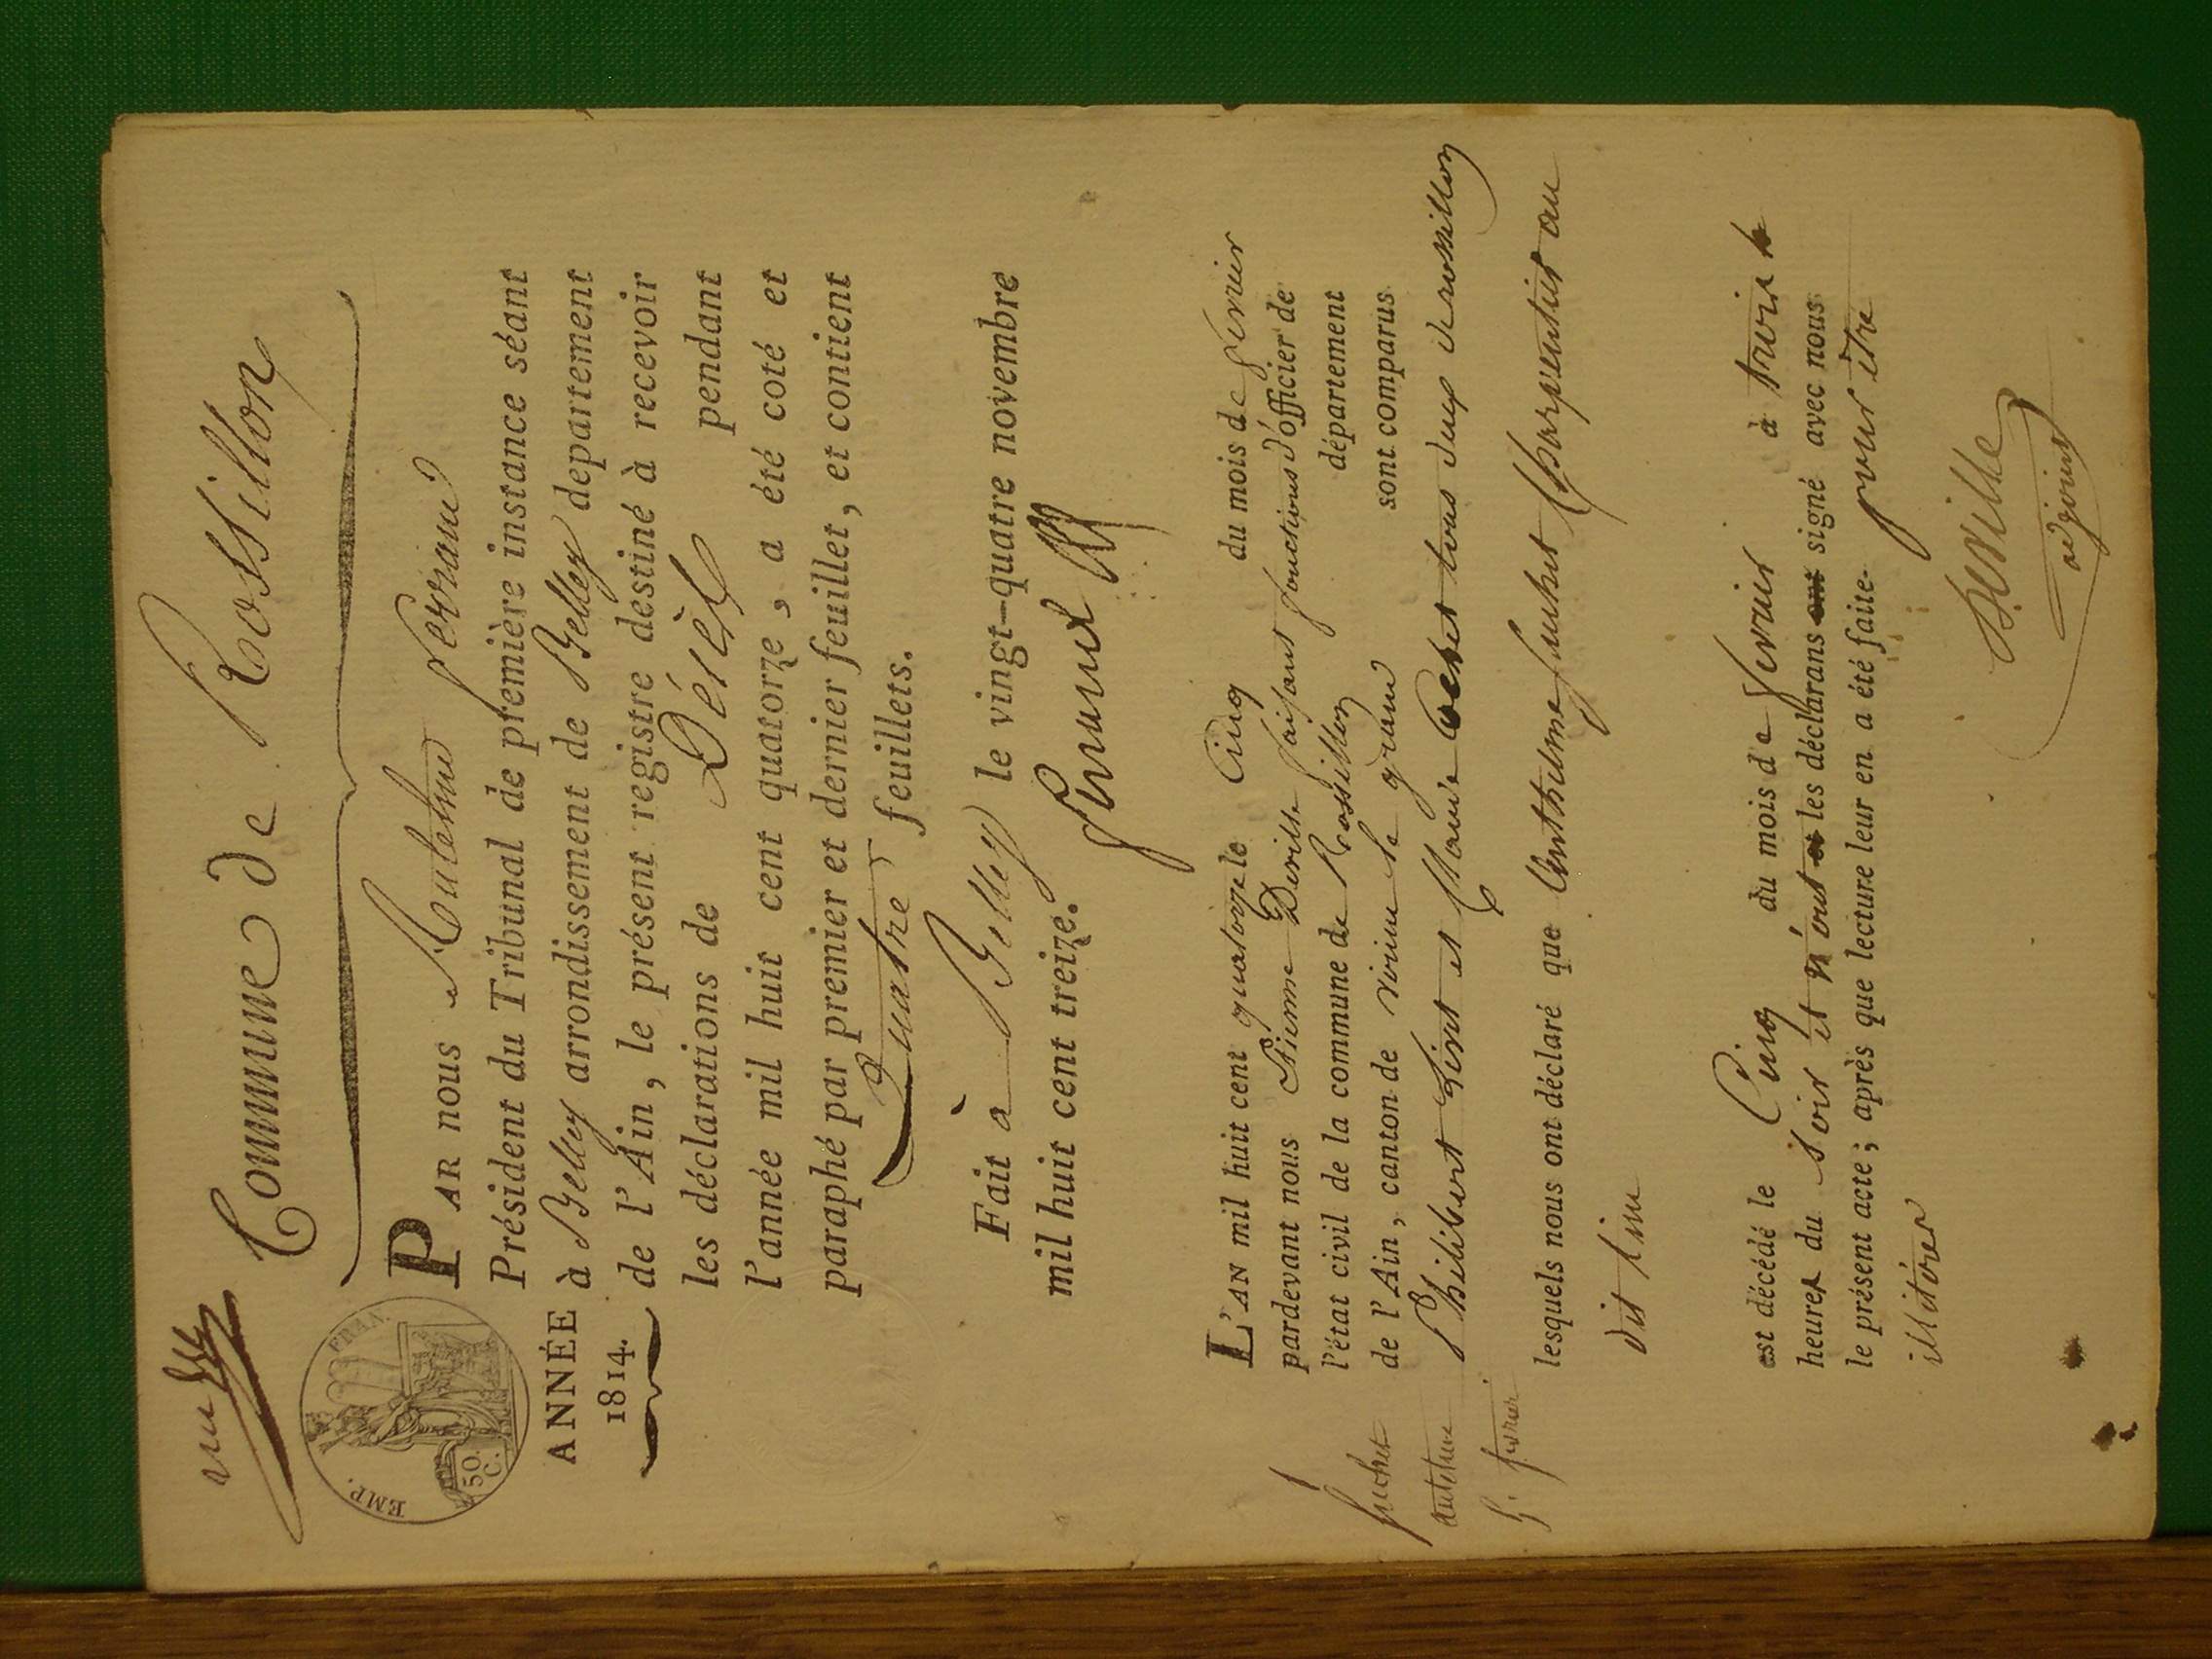 vu
Commune de Rossillon
EMP. FRAN.
50. C.
ANNÉE
1814.
PAR nous Anthelme ferrand
Président du Tribunal de première instance séant
à Belley arrondissement de Belley departement
de l'Ain, le présent registre destiné à recevoir
les déclarations de Décès pendant
l'année mil huit cent quatorze, a été coté et
paraphé par premier et dernier feuillet, et contient
Quatre feuillets.
Fait à Belley le vingt-quatre novembre
mil huit cent treize.
ferrand
L'AN mil huit cent quatorze le Cinq du mois de fevrier
pardevant nous Etienne Deville faisant fonctions d'officier de
l'état civil de la commune de Rossillon département
de l'Ain, canton de virieu le grand sont comparus
fuchet
antelme
5 fevrier
Philibert et Marie tous deux de rossillon
lesquels nous ont déclaré que Anthelme fuchet Charpentier au
dit lieu
est décédé le Cinq du mois de fevrier à trois
heures du soir et n'ont et les déclarans ont signé avec nous
le présent acte; après que lecture leur en a été faite. pour être
illitérés
Deville
adjoint